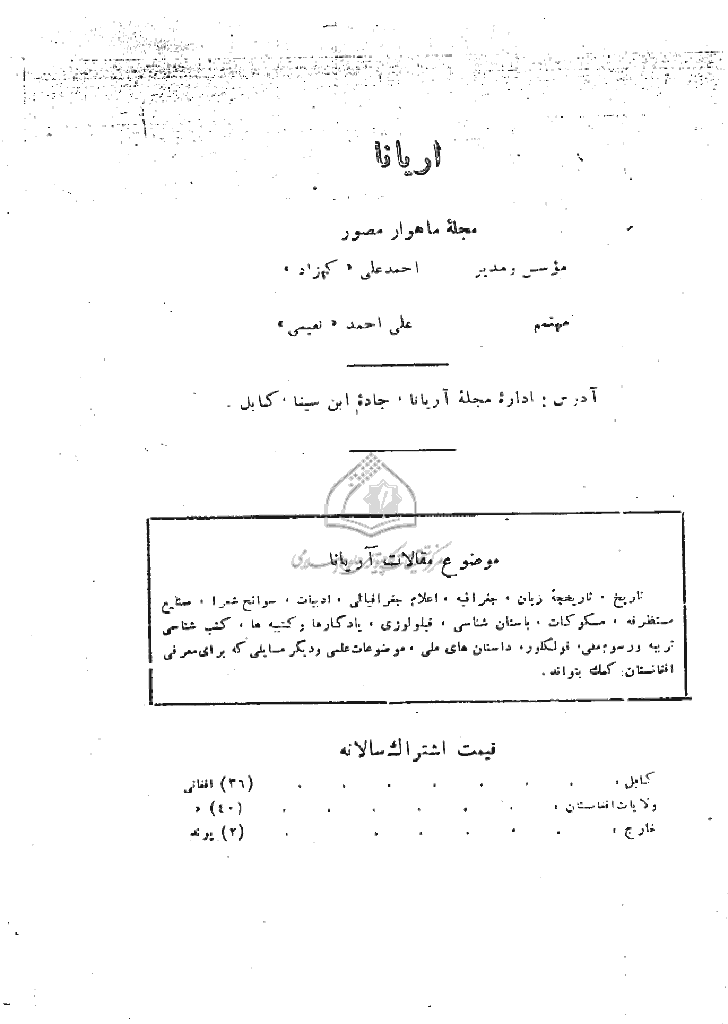 اریانا
مجلهٔ ماهوار مصور
مؤسس و مدیر احمدعلی «کهزاد»
مهتمم علی احمد «نعیمی»
آدرس: ادارهٔ مجلهٔ آریانا، جادهٔ ابن سینا، کابل.
موضوع مقالات آریانا
تاریخ، تاریخچهٔ زبان، جغرافیه، اعلام جغرافیائی، ادبیات، سوانح شعرا، صنایع
مستظرفه، مسکوکات، باستان شناسی، فیلولوژی، یادگارها و کتیبه ها، کتب شناسی
تربیه و رسوم ملی، فولکلور، داستان های ملی، موضوعات علمی و دیگر مسایلی که برای معرفی
افغانستان کمک بتواند.
قیمت اشتراک سالانه
کابل: . . . . . . . (۳٦) افغانی
ولایات افغانستان: . . . . . . (٤۰) »
خارج: . . . . . . (۲) پوند